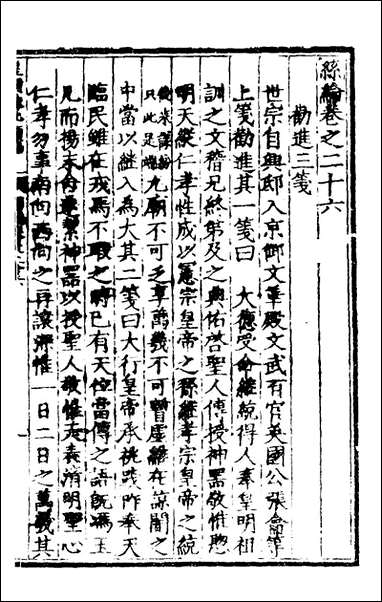 絲綸卷之二十六
勸進三箋
世宗自興邸入京御文華殿文武百官英國公張侖等
上箋勸進其一箋曰 大德受命繼統得人奉皇明祖
訓之文稽兄終弟及之典佑啓聖人傳授神器敬惟聰
明天縱仁孝性成以憲宗皇帝之孫繼孝宗皇帝之統
九廟不可乏享萬幾不可暫虛繼在諒闇之
中當以繼入為大其二箋曰大行皇帝承祧踐祚奉天
臨民雖在戎馬不暇之時已有天位當傳之語旣馮玉
几而揚末命遂繫神器以授聖人敬惟天表清明聖心
仁孝勿事南向西向之再讓深惟一日二日之萬幾其